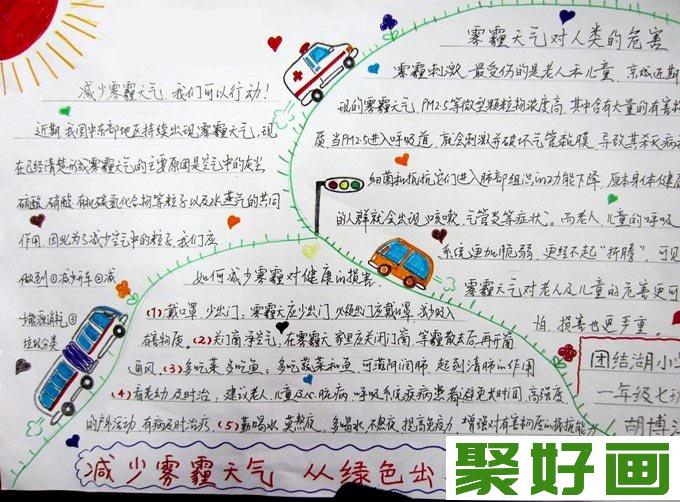 减少雾霾天气,我们可以行动!
近期我国中东部地区持续出现雾霾天气,现
在已经清楚形成雾霾天气的主要原因是空气中的灰尘
硫酸、硝酸、有机碳氢化合物等粒子以及水蒸气的共同
作用,因此为了减少空气中的粒子,我们应
做到①减少开车②减
少能源消耗③
垃圾分类
雾霾天气对人类的危害
雾霾刺激,最受伤的是老人和儿童。
现的雾霾天气,PM2.5等微型颗粒物浓度高,其中含有大量的有害物
质当PM2.5进入呼吸道,就会刺激并破坏气管黏膜,导致其杀病
细菌和抵抗它们进入肺部组织的功能下降,原本身体健康
的人群就会出现咳嗽、气管炎等症状。而老人、儿童的呼吸
系统更加脆弱,更经不起“折腾”,可见
雾霾天气对老人及儿童的危害更可
怕,损害也更严重。
如何减少雾霾对健康的损害
(1)戴口罩,少出门,雾霾天应少出门,必须出门应戴口罩,减少吸入
有害物质。(2)关门窗净空气,在雾霾天家里应关闭门窗,等霾散去后再开窗
通风。(3)多吃菜,多吃鱼,多吃蔬菜和鱼,可滋阴润肺,起到清肺的作用
(4)看老幼及时治,建议老人、儿童及心脏病、呼吸系统疾病患者避免长时间、高强度
的户外活动,有病及时治疗。(5)勤喝水,莫熬夜,多喝水,不熬夜,提高免疫力,增强对有害物质的抵抗能力
团结湖小学
一年级七班
胡博
减少雾霾天气 从绿色出
聚好画